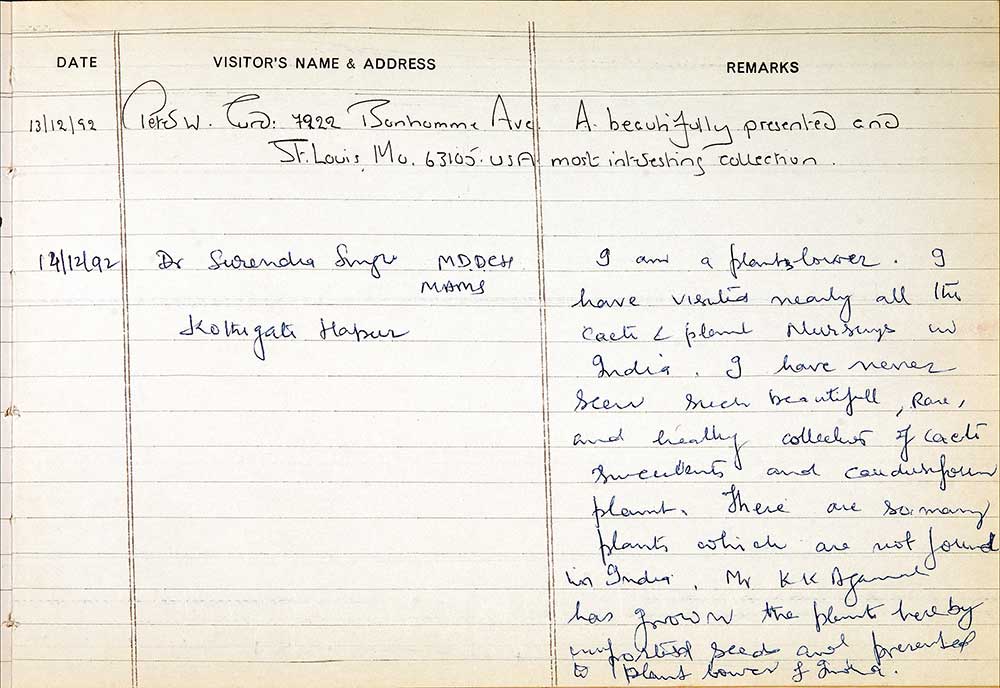 DATE
VISITOR'S NAME & ADDRESS
REMARKS
13/12/92
W. 7922 Bonhomme Ave.
St. Louis, Mo. 63105. USA
A beautifully presented and
most interesting collection.
14/12/92
Dr Surendra Singh M.D.DCH
MAMS
Kothigate Hapur
I am a plants lover. I
have visited nearly all the
cacti & plant Nurserys in
India. I have never
seen such beautifull, Rare,
and healthy collection of cacti
succulents and caudusiform
plant. There are so many
plants which are not found
in India. Mr K K Agarwal
has grown the plants here by
imported seeds and presented
to plant lover of India.